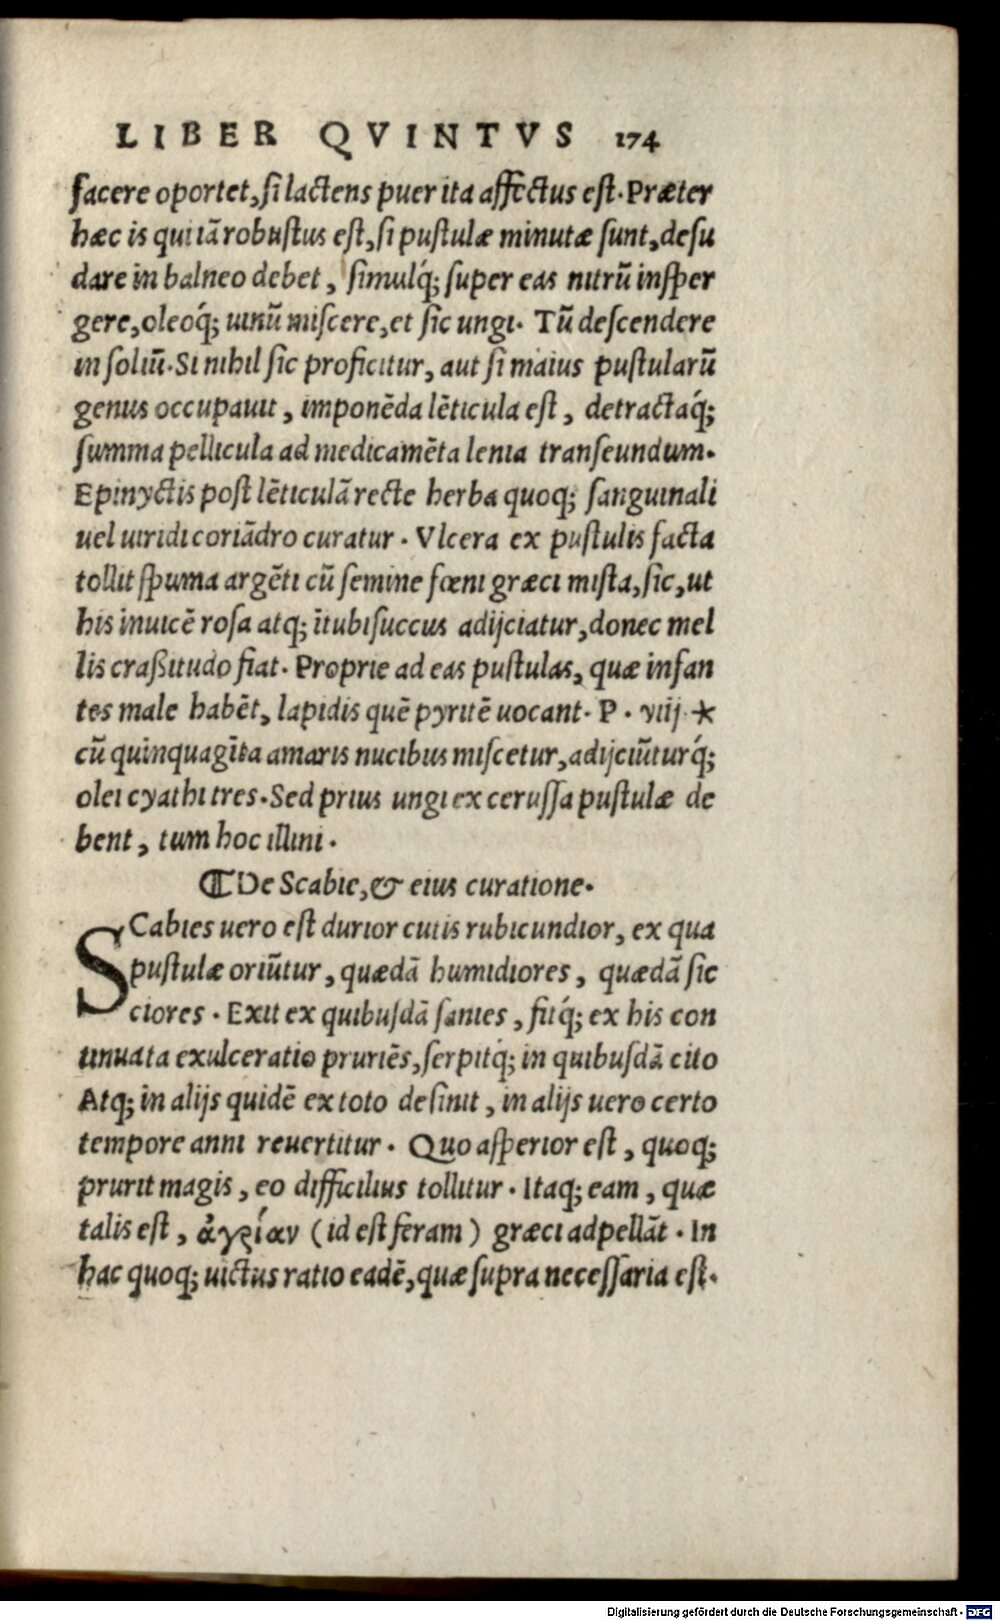 LIBER QVINTVS 174
facere oportet, si lactens puer ita affectus est. Præter
hæc is qui iā robustus est, si pustulæ minutæ sunt, desu
dare in balneo debet, simulq́; super eas nitrū insper
gere, oleoq́; uinū miscere, et sic ungi. Tū descendere
in soliū. Si nihil sic proficitur, aut si maius pustularū
genus occupauit, imponēda lēticula est, detractaq́;
summa pellicula ad medicamēta lenia transeundum.
Epinyctis post lēticulā recte herba quoq; sanguinali
uel uiridi coriādro curatur. Vlcera ex pustulis facta
tollit spuma argēti cū semine fœni græci mista, sic, ut
his inuicē rosa atq; ītubi succus adijciatur, donec mel
lis craßitudo fiat. Proprie ad eas pustulas, quæ infan
tes male habēt, lapidis quē pyritē uocant. P. viij. *
cū quinquagīta amaris nucibus miscetur, adijciūturq́;
olei cyathi tres. Sed prius ungi ex cerussa pustulæ de
bent, tum hoc illini.
⸿ De Scabie, & eius curatione.
SCabies uero est durior cutis rubicundior, ex qua
pustulæ oriūtur, quædā humidiores, quædā sic
ciores. Exit ex quibusdā sanies, fitq́; ex his con
tinuata exulceratio pruriēs, serpitq́; in quibusdā cito
Atq; in alijs quidē ex toto desinit, in alijs uero certo
tempore anni reuertitur. Quo asperior est, quoq;
prurit magis, eo difficilius tollitur. Itaq; eam, quæ
talis est, ἀγρίαν (id est feram) græci adpellāt. In
hac quoq; uictus ratio eadē, quæ supra necessaria est.
Digitalisierung gefördert durch die Deutsche Forschungsgemeinschaft - DFG